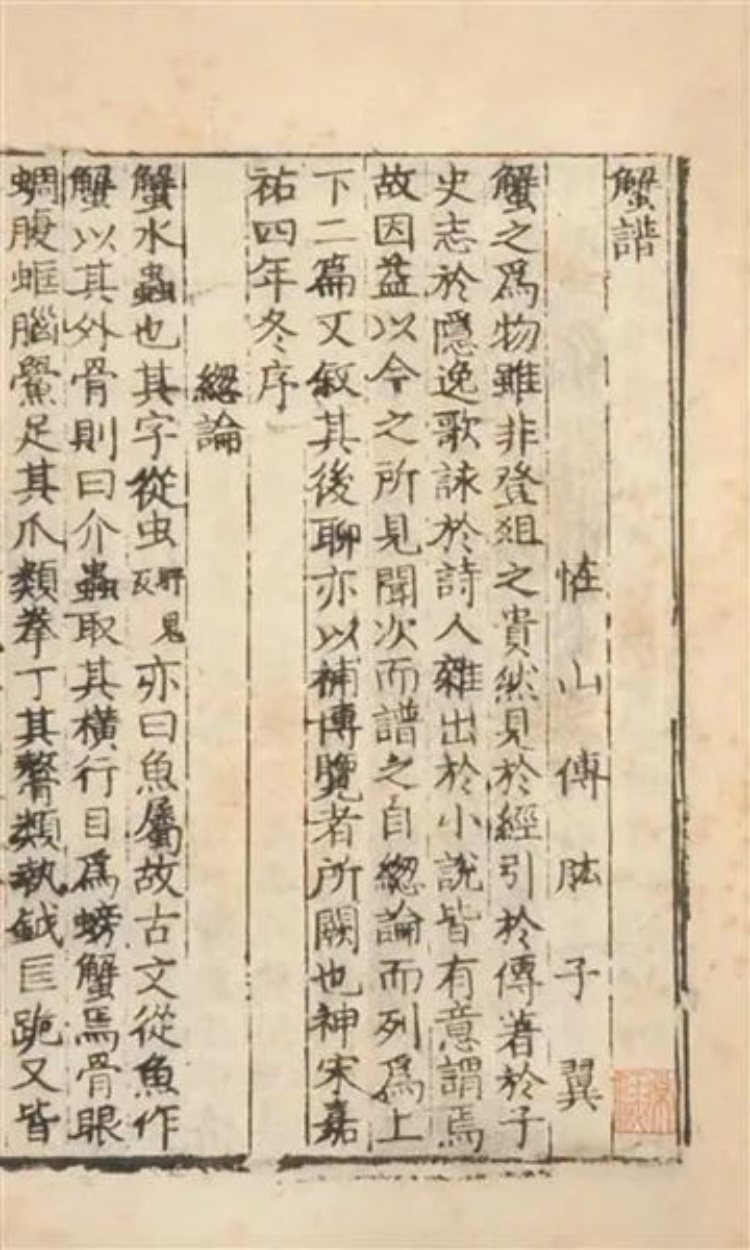 蟹譜
恠山傅肱子翼
蟹之爲物雖非登俎之貴然見於經引於傳著於子
史志於隱逸歌詠於詩人雜出於小說皆有意謂焉
故因益以今之所見聞次而譜之自緫論而列爲上
下二篇又敘其後聊亦以補博覽者所闕也神宋嘉
祐四年冬序
緫論
蟹水蟲也其字從虫亦曰魚屬故古文從魚作
蟹以其外骨則曰介蟲取其橫行目爲螃蟹焉骨眼
蜩腹𧋻腦鱟足其爪類拳丁其螯類執鉞匡跪又皆